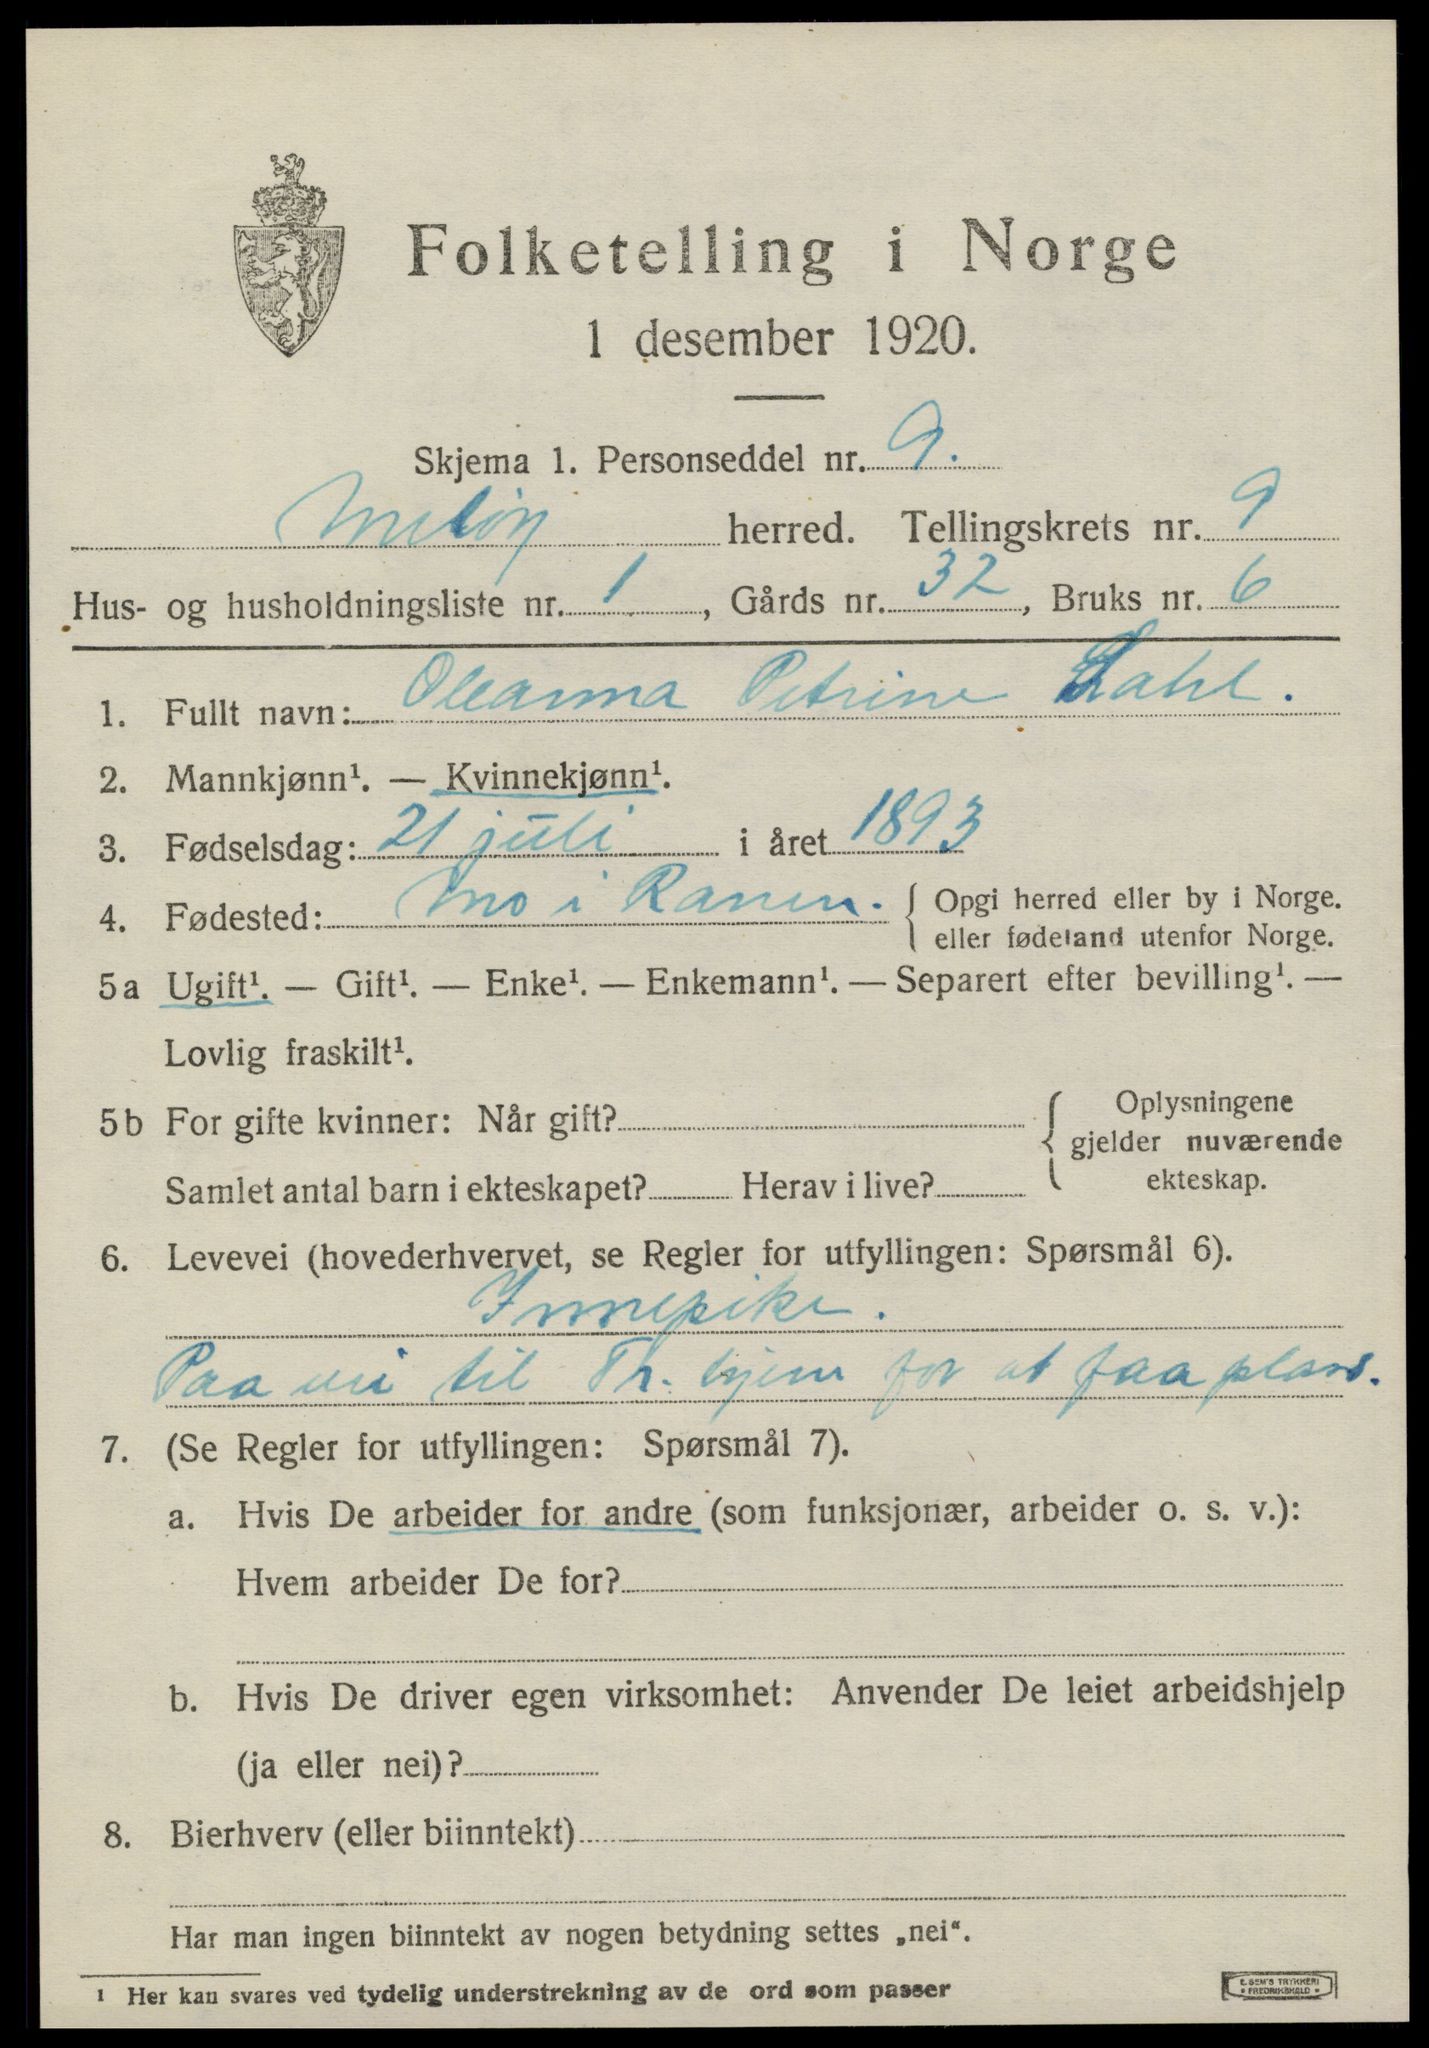 Folketelling i Norge
1 desember 1920.
Skjema 1. Personseddel nr. 9.
Meløy herred. Tellingskrets nr. 9
Hus- og husholdningsliste nr. 1, Gårds nr. 32, Bruks nr. 6
1. Fullt navn: Oleanna Petrine Dahl.
2. Mannkjønn¹. — Kvinnekjønn¹.
3. Fødselsdag: 21 juli i året 1893
4. Fødested: Mo i Ranen. { Opgi herred eller by i Norge.
eller fødeland utenfor Norge.
5a Ugift¹. — Gift¹. — Enke¹. — Enkemann¹. — Separert efter bevilling¹. —
Lovlig fraskilt¹.
5b For gifte kvinner: Når gift?
Samlet antal barn i ekteskapet? Herav i live?
{ Oplysningene
gjelder nuværende
ekteskap.
6. Levevei (hovederhvervet, se Regler for utfyllingen: Spørsmål 6).
Innepike.
Paa vei til Tr. hjem for at faa plass.
7. (Se Regler for utfyllingen: Spørsmål 7).
a. Hvis De arbeider for andre (som funksjonær, arbeider o. s. v.):
Hvem arbeider De for?
b. Hvis De driver egen virksomhet: Anvender De leiet arbeidshjelp
(ja eller nei)?
8. Bierhverv (eller biinntekt)
Har man ingen biinntekt av nogen betydning settes „nei“.
¹ Her kan svares ved tydelig understrekning av de ord som passer
E. SEM'S TRYKKERI
• FREDRIKSHALD •